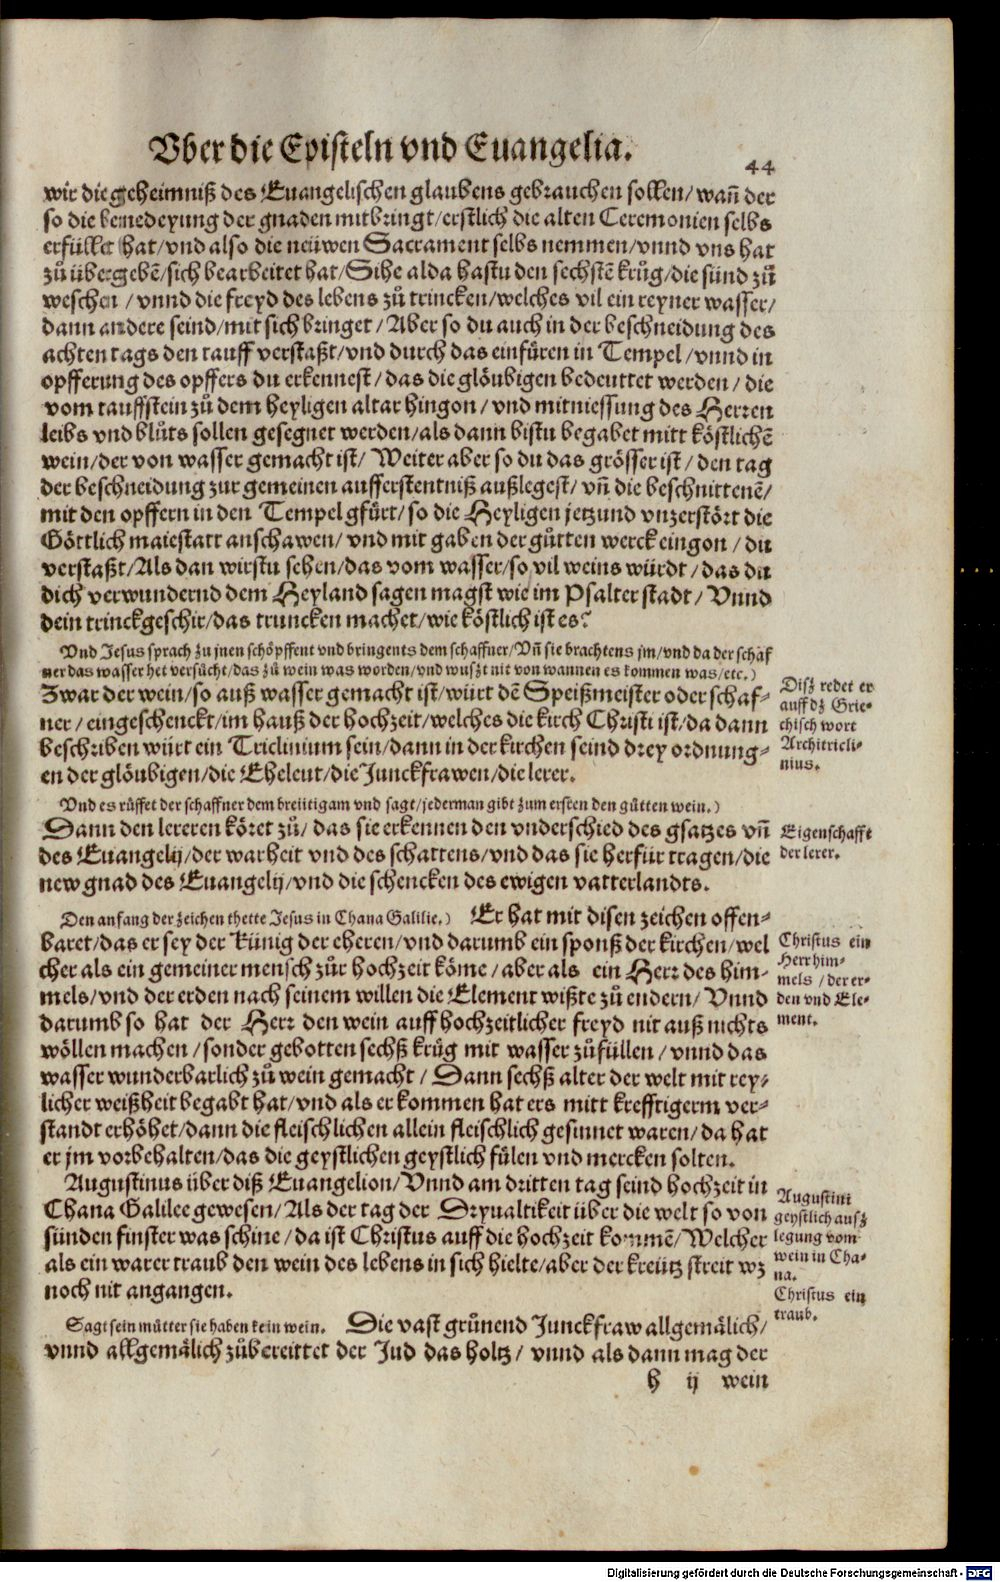 Vber die Episteln vnd Euangelia.
44
wir die geheimniß des Euangelischen glaubens gebrauchen sollen/ wañ der
so die benedeyung der gnaden mitbringt/ erstlich die alten Ceremonien selbs
erfüllet hat/ vnd also die neüwen Sacrament selbs nemmen/ vnnd vns hat
zů übergebē/ sich bearbeitet hat/ Sihe alda hastu den sechstē krůg/ die sünd zů
weschen / vnnd die freyd des lebens zů trincken/ welches vil ein reyner wasser/
dann andere seind/ mit sich bringet / Aber so du auch in der beschneidung des
achten tags den tauff verstaßt/ vnd durch das einfüren in Tempel / vnnd in
opfferung des opffers du erkennest / das die glöubigen bedeuttet werden / die
vom tauffstein zů dem heyligen altar hingon / vnd mitniessung des Herren
leibs vnd blůts sollen gesegnet werden/ als dann bistu begabet mitt köstlichē
wein/ der von wasser gemacht ist/ Weiter aber so du das grösser ist / den tag
der beschneidung zur gemeinen aufferstentniß außlegest/ vñ die beschnittenē/
mit den opffern in den Tempel gfürt/ so die Heyligen jetzund vnzerstört die
Göttlich maiestatt anschawen/ vnd mit gaben der gůtten werck eingon / du
verstaßt/ Als dan wirstu sehen/ das vom wasser/ so vil weins würdt / das du
dich verwundernd dem Heyland sagen magst wie im Psalter stadt / Vnnd
dein trinckgeschir/ das truncken machet/ wie köstlich ist es?
Vnd Jesus sprach zu jnen schöpffent vnd bringents dem schaffner/ Vñ sie brachtens jm/ vnd da der schaf
ner das wasser het versůcht/ das zů wein was worden/ vnd wuszt nit von wannen es kommen was/ etc.)
Zwar der wein/ so auß wasser gemacht ist/ würt dē Speißmeister oder schaf-
ner / eingeschenckt/ im hauß der hochzeit/ welches die kirch Christi ist/ da dann
beschriben würt ein Triclinium sein/ dann in der kirchen seind drey ordnung-
en der glöubigen/ die Eheleut/ die Junckfrawen/ die lerer.
Disz redet er
auff dz Grie-
chisch wort
Architricli-
nius.
Vnd es rüffet der schaffner dem breütigam vnd sagt/ jederman gibt zum ersten den gůtten wein.)
Dann den lereren köret zů/ das sie erkennen den vnderschied des gsatzes vñ
des Euangelij/ der warheit vnd des schattens/ vnd das sie herfür tragen/ die
new gnad des Euangelij/ vnd die schencken des ewigen vatterlandts.
Eigenschafft
der lerer.
Den anfang der zeichen thette Jesus in Chana Galilie.) Er hat mit disen zeichen offen-
baret/ das er sey der Künig der eheren/ vnd darumb ein sponß der kirchen/ wel
cher als ein gemeiner mensch zůr hochzeit köme / aber als ein Herr des him-
mels/ vnd der erden nach seinem willen die Element wißte zů endern/ Vnnd
darumb so hat der Herr den wein auff hochzeitlicher freyd nit auß nichts
wöllen machen / sonder gebotten sechß krüg mit wasser zůfüllen / vnnd das
wasser wunderbarlich zů wein gemacht / Dann sechß alter der welt mit rey-
licher weißheit begabt hat/ vnd als er kommen hat ers mitt krefftigerm ver-
standt erhöhet/ dann die fleischlichen allein fleischlich gesinnet waren/ da hat
er jm vorbehalten/ das die geystlichen geystlich fülen vnd mercken solten.
Christus ein
Herr him-
mels / der er-
den vnd Ele-
ment.
Augustinus über diß Euangelion/ Vnnd am dritten tag seind hochzeit in
Chana Galilee gewesen/ Als der tag der Dryualtikeit über die welt so von
sünden finster was schine / da ist Christus auff die hochzeit kommē/ Welcher
als ein warer traub den wein des lebens in sich hielte/ aber der kreütz streit wz
noch nit angangen.
Augustini
geystlich ausz
legung vom
wein in Cha-
na.
Christus ein
traub.
Sagt sein můtter sie haben kein wein. Die vast grůnend Junckfraw allgemälich/
vnnd allgemälich zůbereittet der Jud das holtz/ vnnd als dann mag der
h ij wein
Digitalisierung gefördert durch die Deutsche Forschungsgemeinschaft - DFG